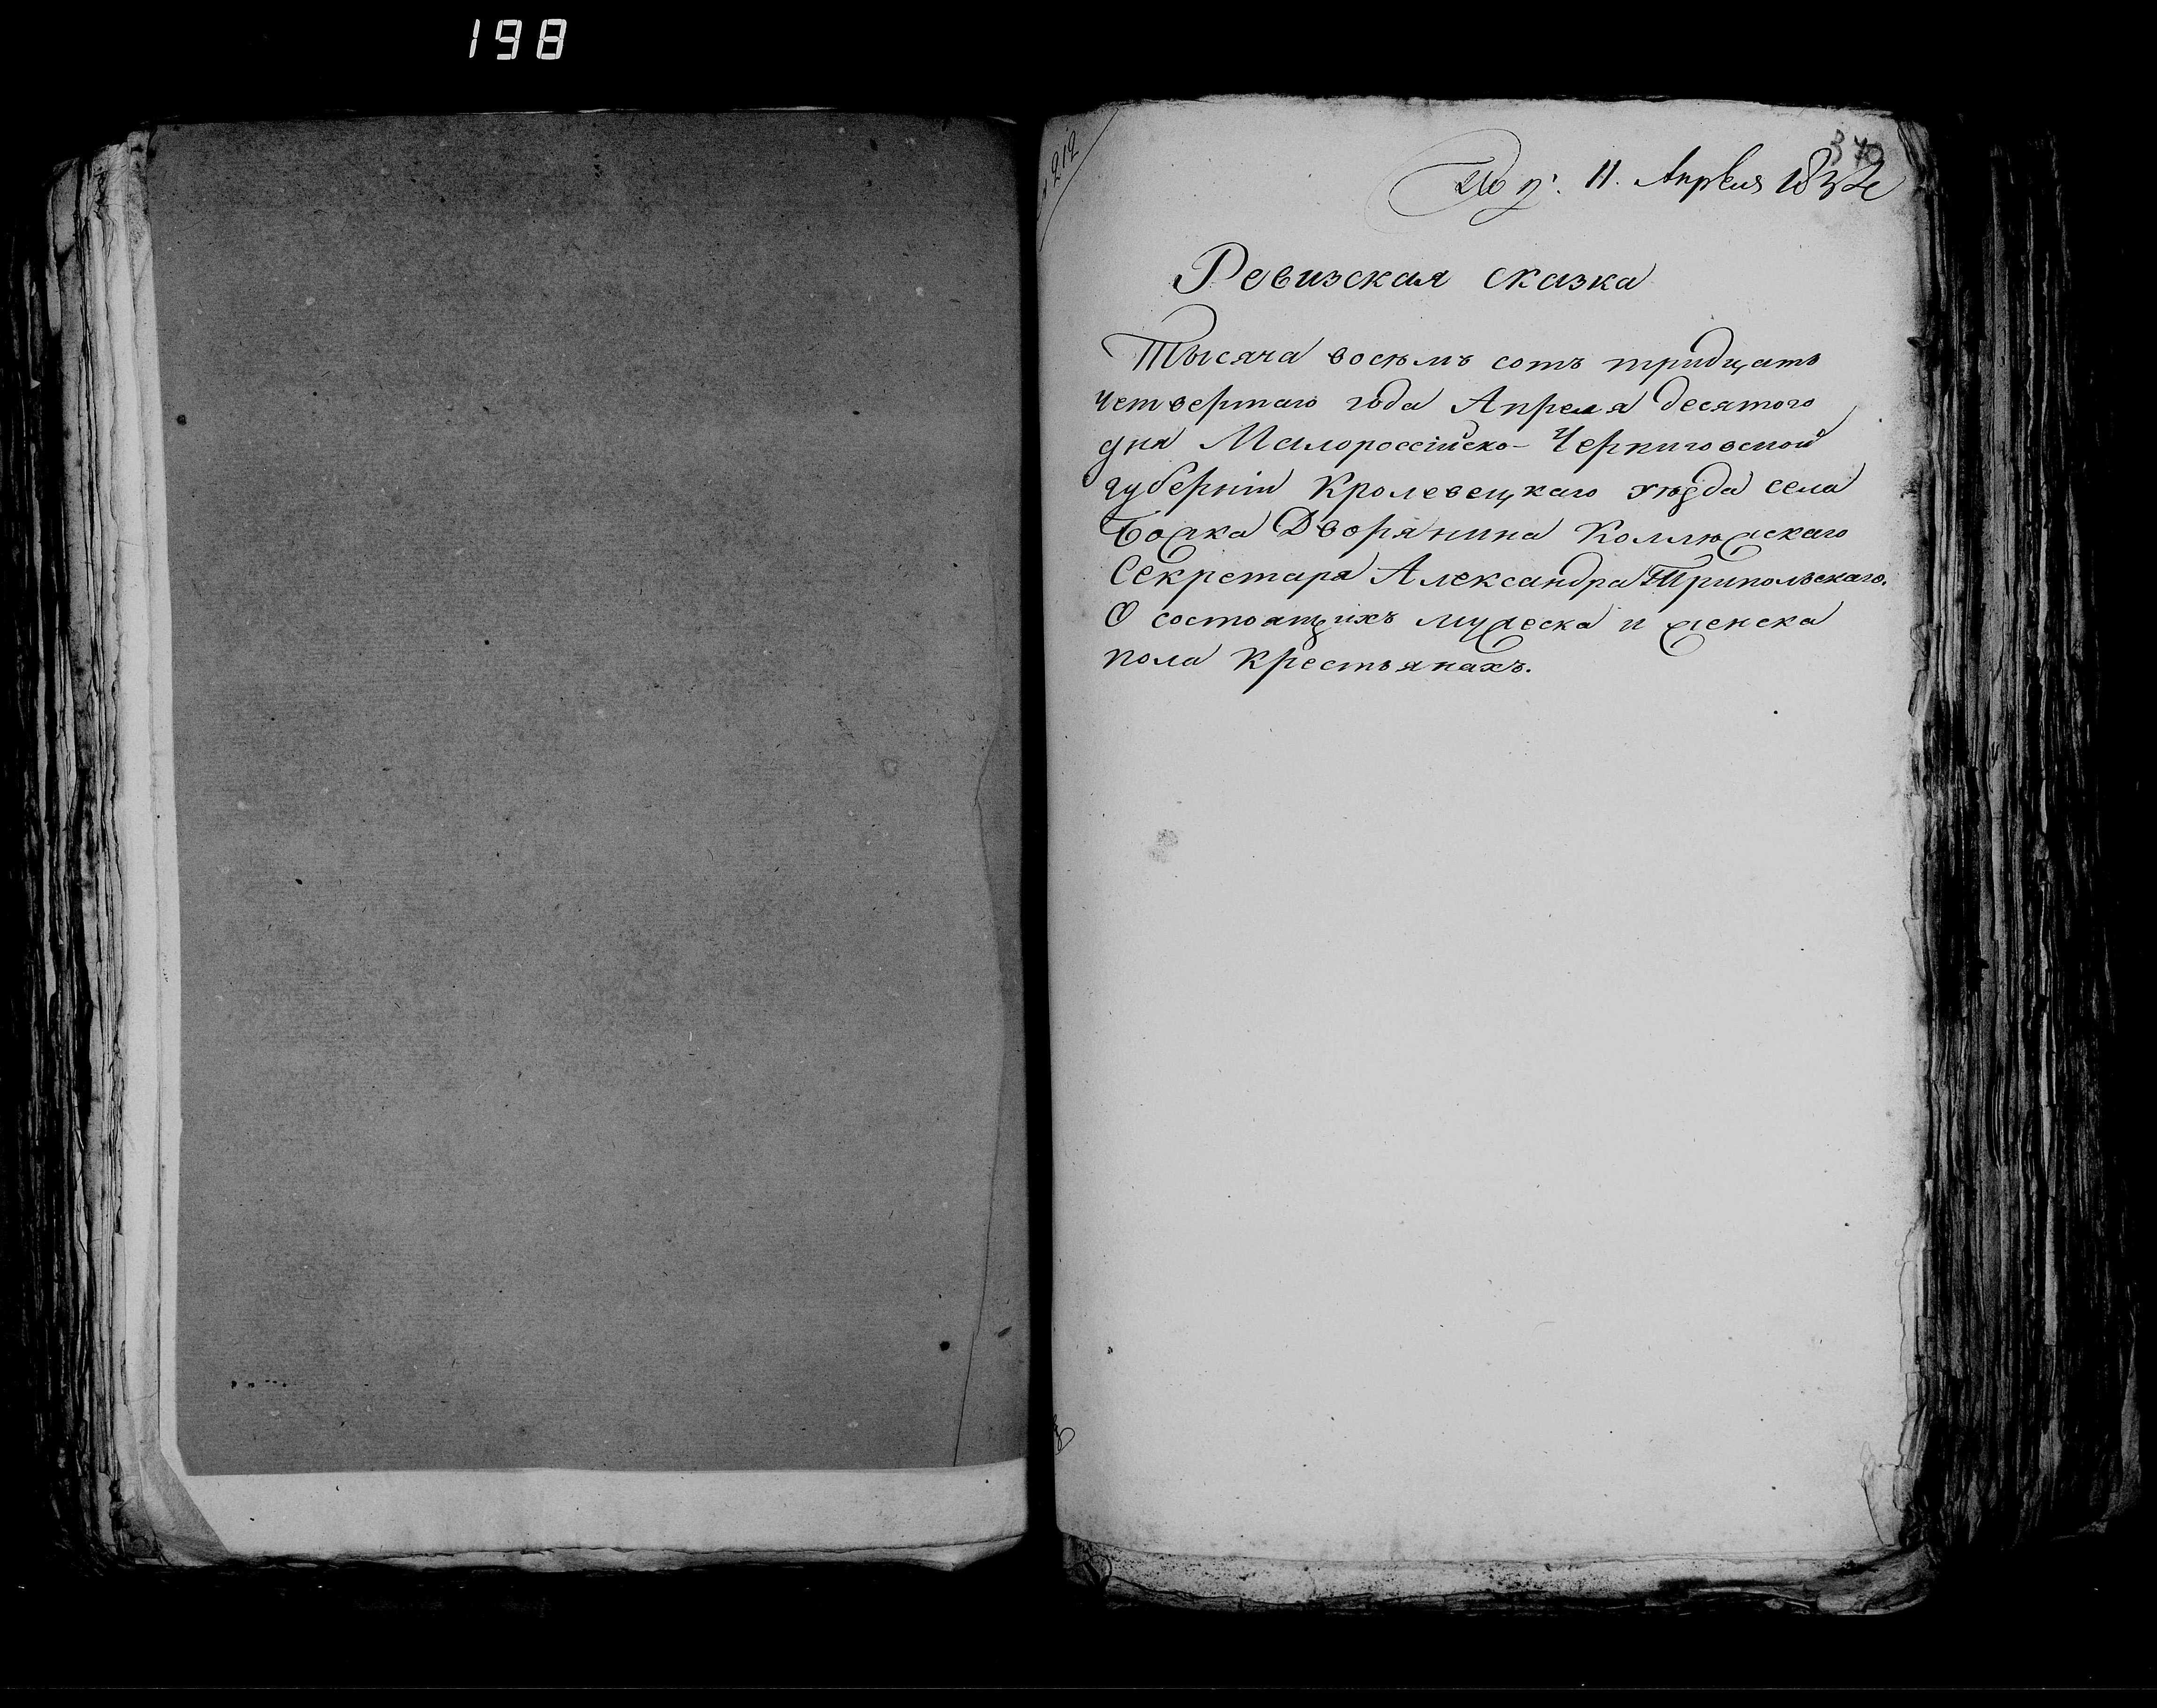 198
212
370
11. Апреля 1834
Ревизская сказка
Тысяча восѣмъ сотъ тридцать
четвертаго года Апреля десятого
дня Малороссійско-Черниговской
губерніи Кролевецкаго уѣзда села
Божка Дворянина Коллѣжскаго
Секретаря Александра Трипольскаго.
О состоящихъ мужеска и женска
пола крестьянахъ.